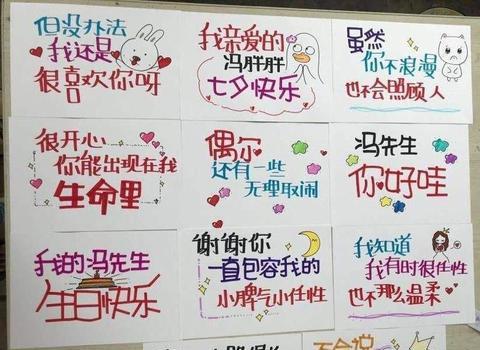 但没办法
我还是
很喜欢你呀
我亲爱的
冯胖胖
七夕快乐
虽然
你不浪漫
也不会照顾人
很开心
你能出现在我
生命里
偶尔
还有一些
无理取闹
冯先生
你好哇
我的冯先生
生日快乐
谢谢你
一直包容我的
小脾气小任性
我知道
我有时很任性
也不那么温柔
不会说